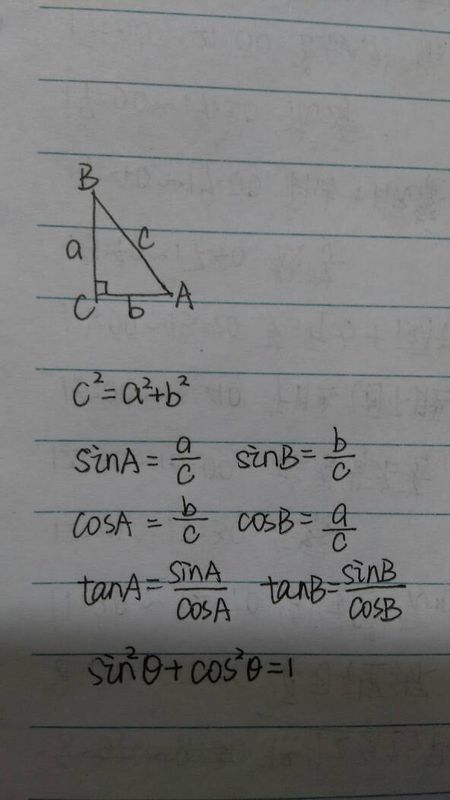 B
a c
C b A
c²=a²+b²
sinA = a/c sinB = b/c
cosA = b/c cosB = a/c
tanA = sinA/cosA tanB = sinB/cosB
sin²θ + cos²θ = 1